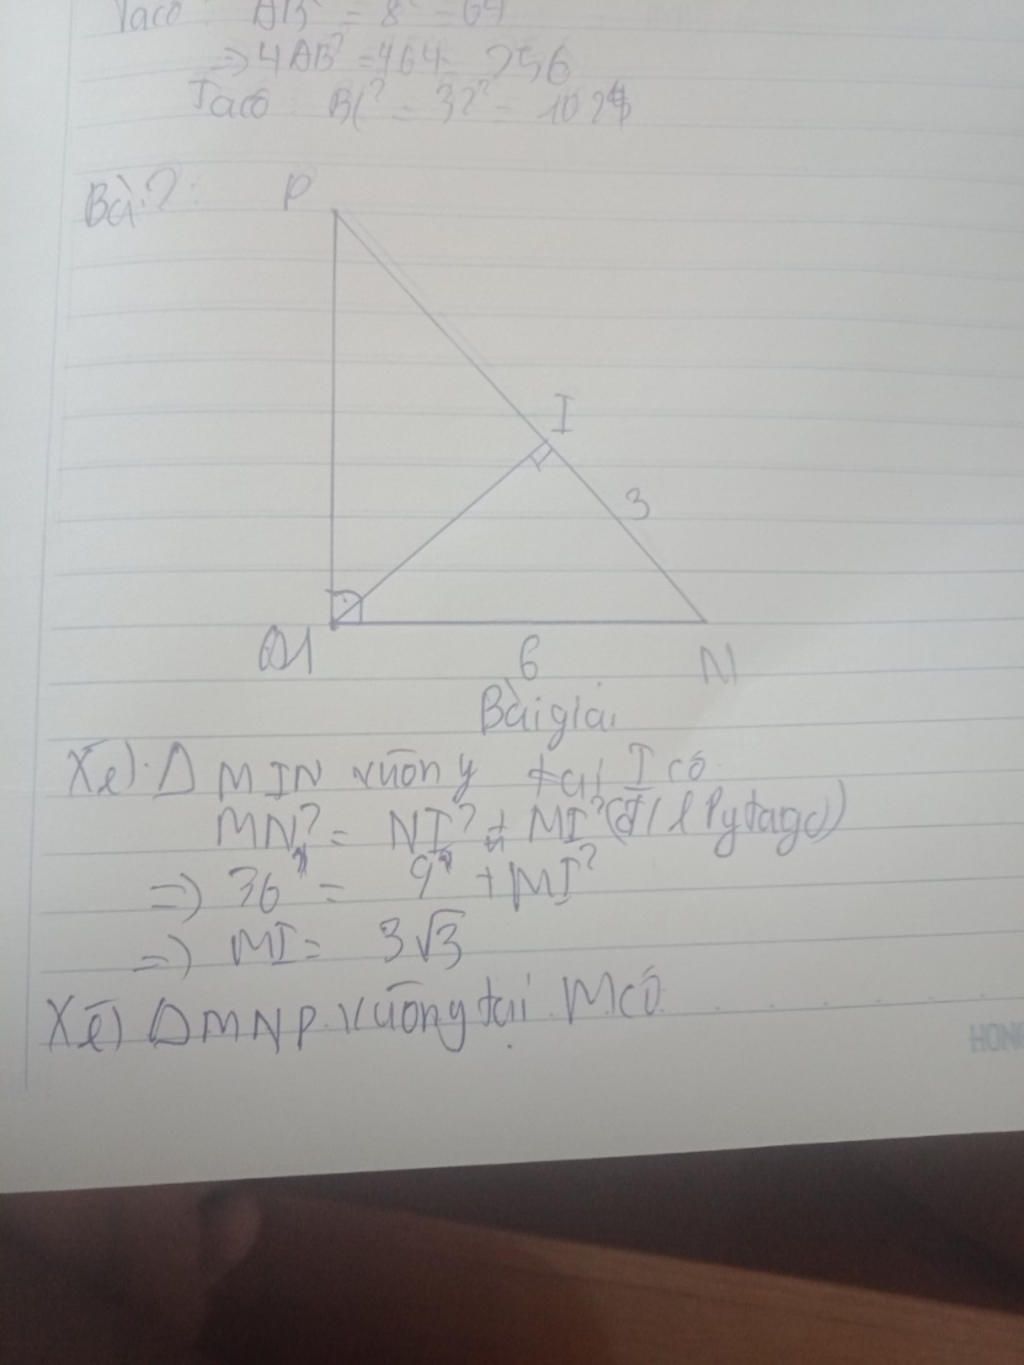 Taco: AB² = 8² = 64
=> 4AB² = 464 = 256
Taco: BC² = 32² = 1024
Bài 2:
P
I
3
M
6
N
Bài giải
Xét Δ MIN vuông tại I có
MN² = NI² + MI² (đ/l Pytago)
=> 36 = 9 + MI²
=> MI = 3√3
Xét ΔMNP vuông tại M có
HONG